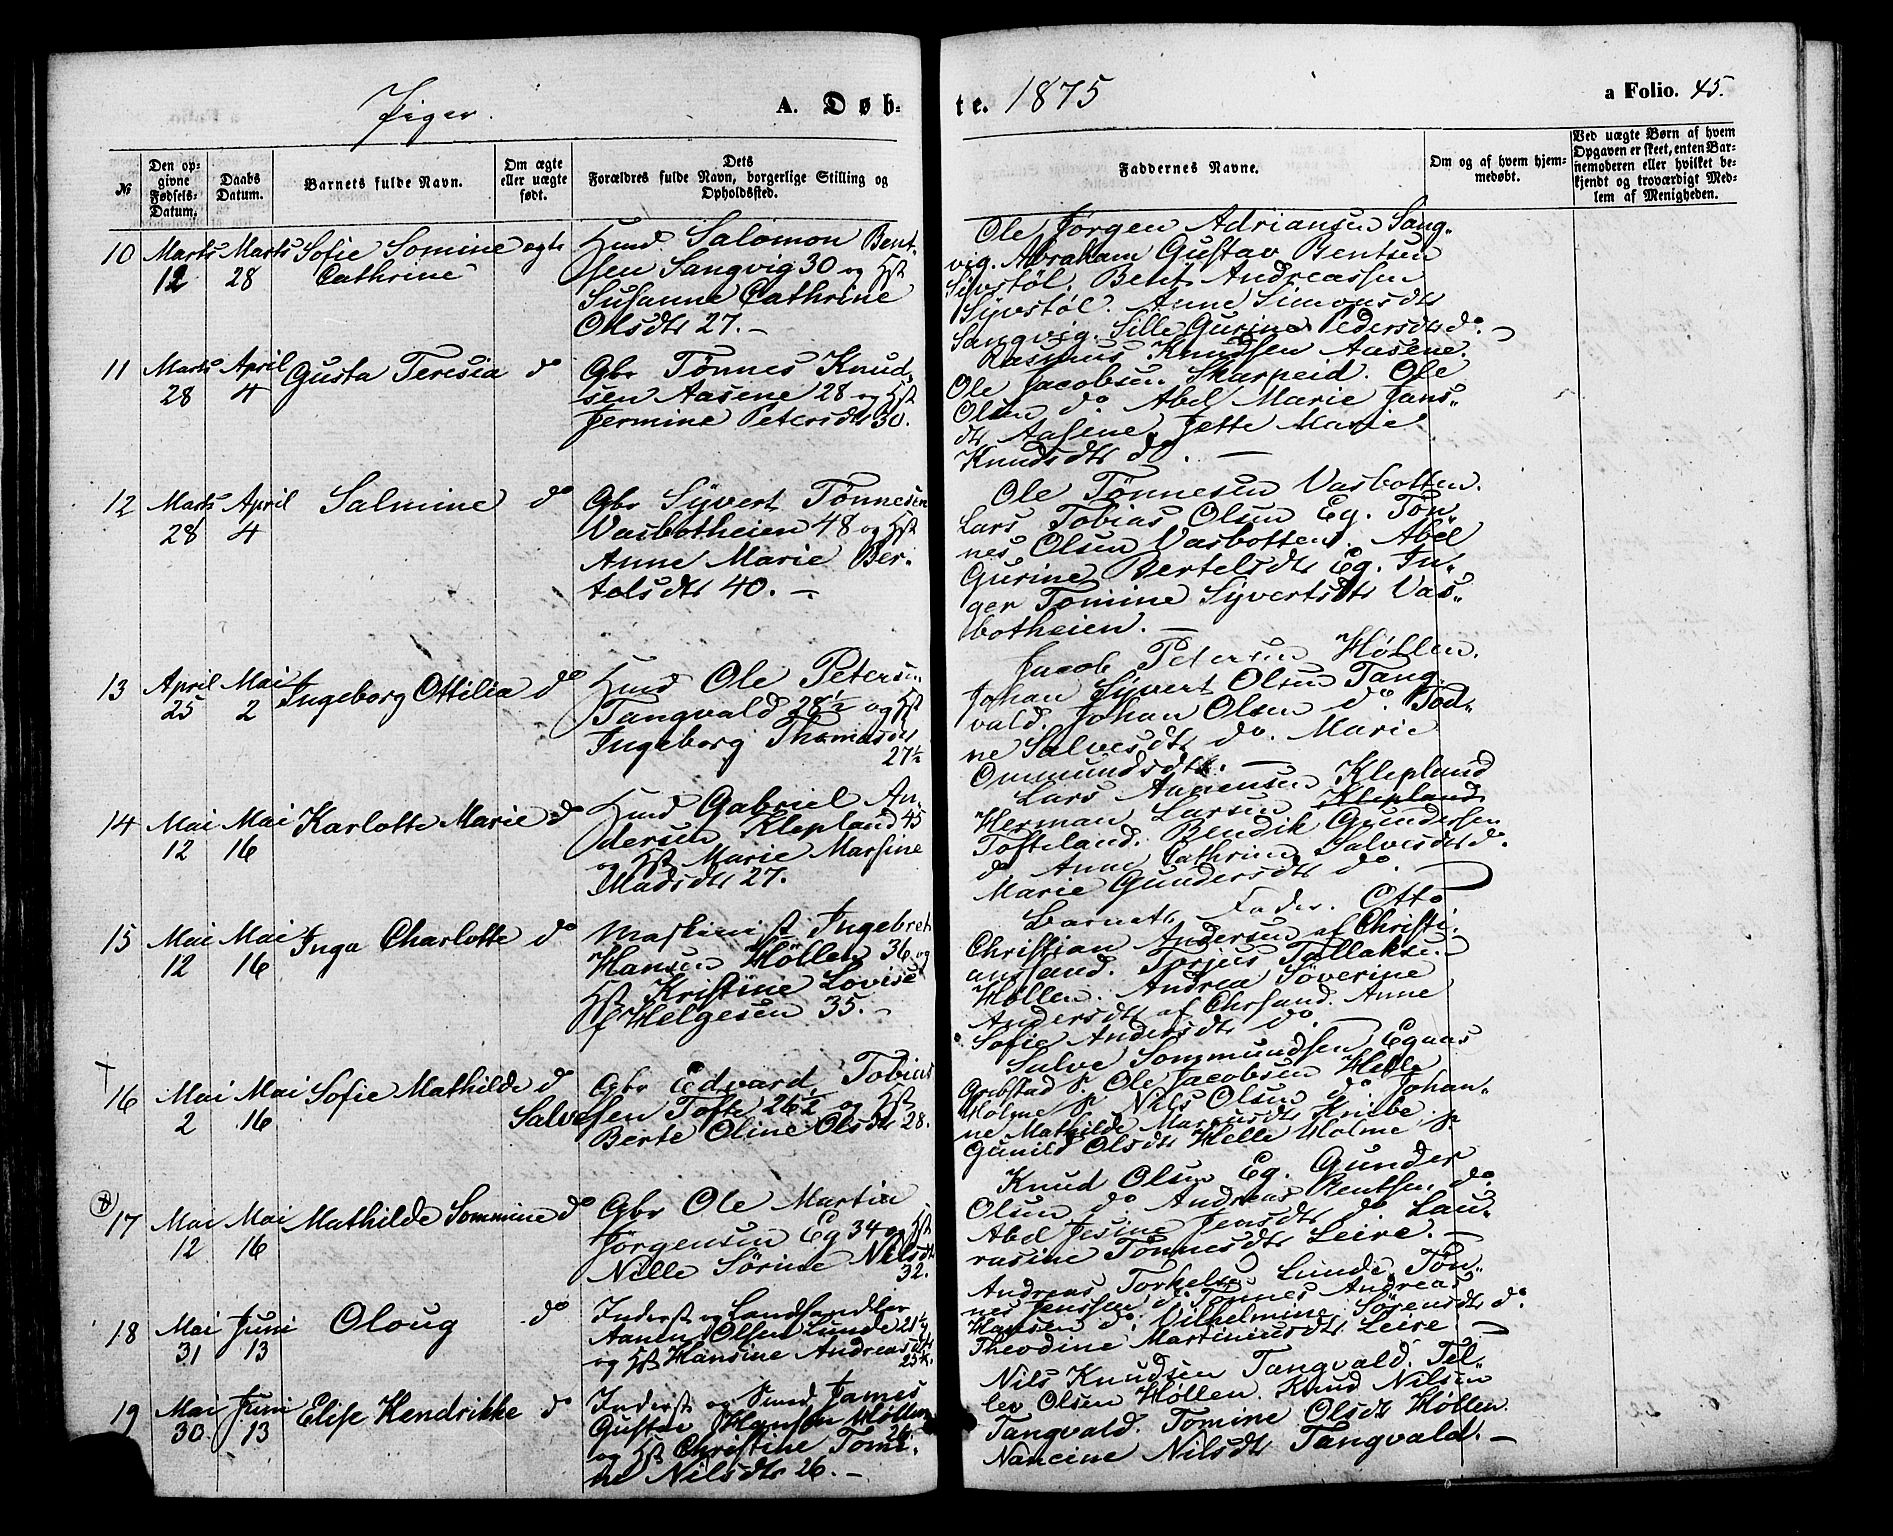 Piger.
A. Døb-
te. 1875
a Folio. 45.
№
Den op-
givne
Fødsels-
Datum.
Daabs
Datum.
Barnets fulde Navn.
Om ægte
eller uægte
født.
Dets
Forældres fulde Navn, borgerlige Stilling og
Opholdssted.
Faddernes Navne.
Om og af hvem hjem-
medøbt.
Ved uægte Børn af hvem
Opgaven er skeet, enten Bar-
nemoderen eller hvilket be-
kjendt og troværdigt Med-
lem af Menigheden.
10 Marts 12 Marts 28 Sofie Somine Cathrine ægte
Salomon Bent-
sen Sangvig 30 og Hst
Susanne Cathrine
Olsdtr 27. —
Ole Jørgen Adriansen Sang-
vig. Abraham Gustav Bentsen
Syvstøl. Bent Andreassen
Syvstøl. Anne Simonsdtr
Sangvig. Sille Gurine Pedersdtr do. —
11 Marts 28 April 4 Gusta Teresia do
Gbr Tønnes Knud-
sen Aasene 28 og Hst
Jermine Petersdtr 30.
Rasmus Knudsen Aasene.
Ole Jacobsen Skarpeid. Ole
Olsen do. Abel Marie Jans-
dtr Aasene. Jette Marie
Knudsdtr do. —
12 Marts 28 April 4 Salmine do
Gbr Syvert Tønnesen
Vasbotheien 48 og Hst
Anne Marie Ber-
tolsdtr 40. —
Ole Tønnesen Vasbotten.
Lars Tobias Olsen Eg. Tøn-
nes Olsen Vasbotten. Abel
Gurine Bertelsdtr Eg. In-
ger Tomine Syvertsdtr Vas-
botheien. —
13 April 25 Mai 2 Ingeborg Ottilia do
Ole Petersen
Tangvald 28½ og Hst
Ingeborg Thomasdtr
27½
Jacob Petersen Høllen.
Johan Syvert Olsen Tang-
vald. Johan Olsen do. Tod-
ne Salvesdtr do. Marie
Ommundsdtr. —
14 Mai 12 Mai 16 Karlotte Marie do
Gabriel An-
dersen Klepland 45
og Hst Marie Marsine
Madsdtr 27.
Lars Aanensen Klepland
Herman Larsen Klepland
Tofteland. Bendik Gundersen
do. Anne Cathrine Salvesdtr do.
Marie Gundersdtr do. —
15 Mai 12 Mai 16 Inga Charlotte do
Maskinist Ingebret
Hansen Høllen 36 og
Hst Kristine Lovise
f Helgesen 35. —
Barnets Fader. Otto
Christian Andersen af Christi-
ansand. Torjus Tallaksen
Høllen. Andrea Söverine
Andersdtr af Chrsand. Anne
Sofie Andersdtr do.
16 Mai 2 Mai 16 Sofie Mathilde do
Gbr Edvard Tobias
Salvesen Tofte 26½ og Hst
Berte Oline Olsdtr 28.
Salve Sommundsen Egaas
Ole Jacobsen Helle
Holme p. Nils Olsen do. Johan-
ne Mathilde Marcusdtr
Gunild Olsdtr Helle Holme p
17 Mai 12 Mai 16 Mathilde Sommine do
Gbr Ole Martin
Jørgensen Eg 34 og Hst
Nille Sørine Nilsdtr
32.
Knud Olsen Eg. Gunder
Olsen do. Andreas Bentsen do.
Abel Jesine Jensdtr do Lau-
rasine Tønnesdtr Leire. —
18 Mai 31 Juni 13 Oloug do
Inderst og Landhandler
Aanen Olsen Lunde 21½
og Hst Hansine Andreasdtr
Andreas Torkelsen Lunde. Tøn-
nes Jenssen do. Tønnes Andreas
Hansen do. Vilhelmine Sørensdtr do.
Theodine Martiniusdtr Leire —
19 Mai 30 Juni 13 Elise Hendrikke do
Inderst og James
Gustav Hansen Høllen
26.
og Hst Christine Tomi-
ne Nilsdtr 26. —
Nils Knudsen Tangvald. Tel-
lev Olsen Høllen. Knud Nilsen
Tangvald. Tomine Olsdtr Høllen.
Nancine Nilsdtr Tangvald. —